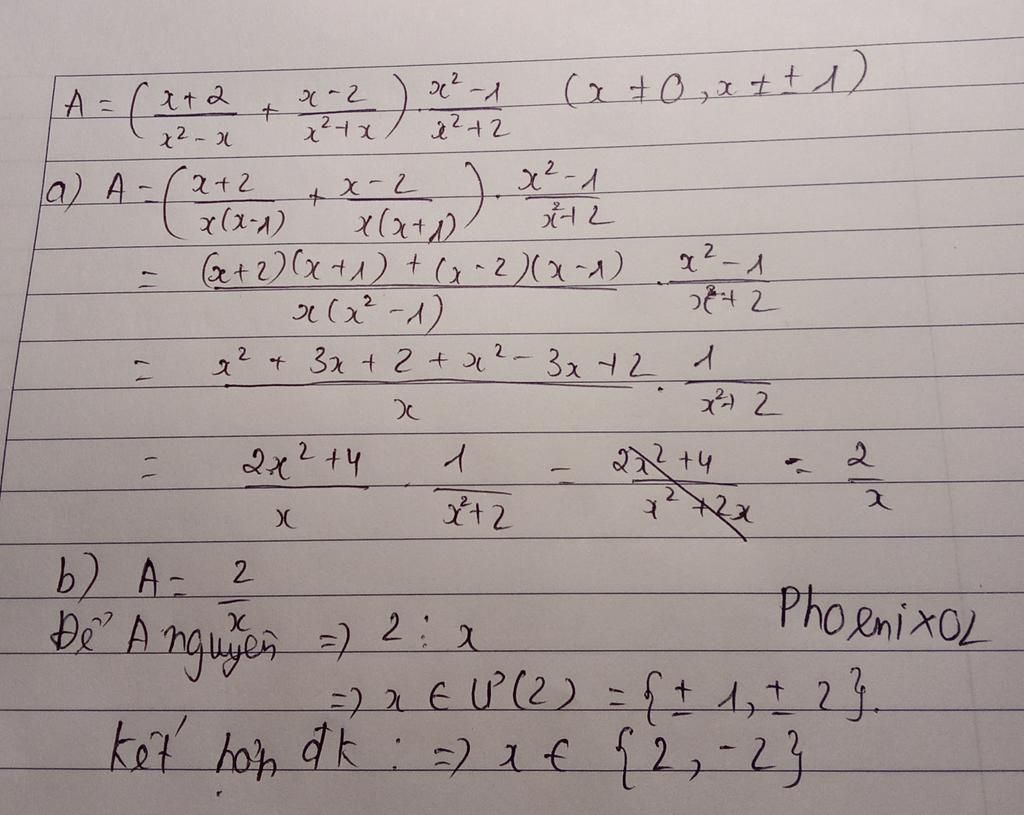 A = ( (x+2)/(x² - x) + (x-2)/(x²+x) ) . (x² -1)/(x²+2) (x ≠ 0, x ≠ ± 1)
a) A = ( (x+2)/(x(x-1)) + (x-2)/(x(x+1)) ) . (x² -1)/(x²+2)
= ((x+2)(x+1) + (x-2)(x-1))/(x(x² -1)) . (x² -1)/(x²+2)
= (x² + 3x + 2 + x² - 3x + 2)/x . 1/(x²+2)
= (2x² +4)/x . 1/(x²+2) = (2x² +4)/(x² +2x) = 2/x
b) A = 2/x
Để A nguyên => 2 ⋮ x
PhoenixOL
=> x ∈ Ư(2) = {± 1, ± 2}.
Kết hợp đk : => x ∈ {2, -2}